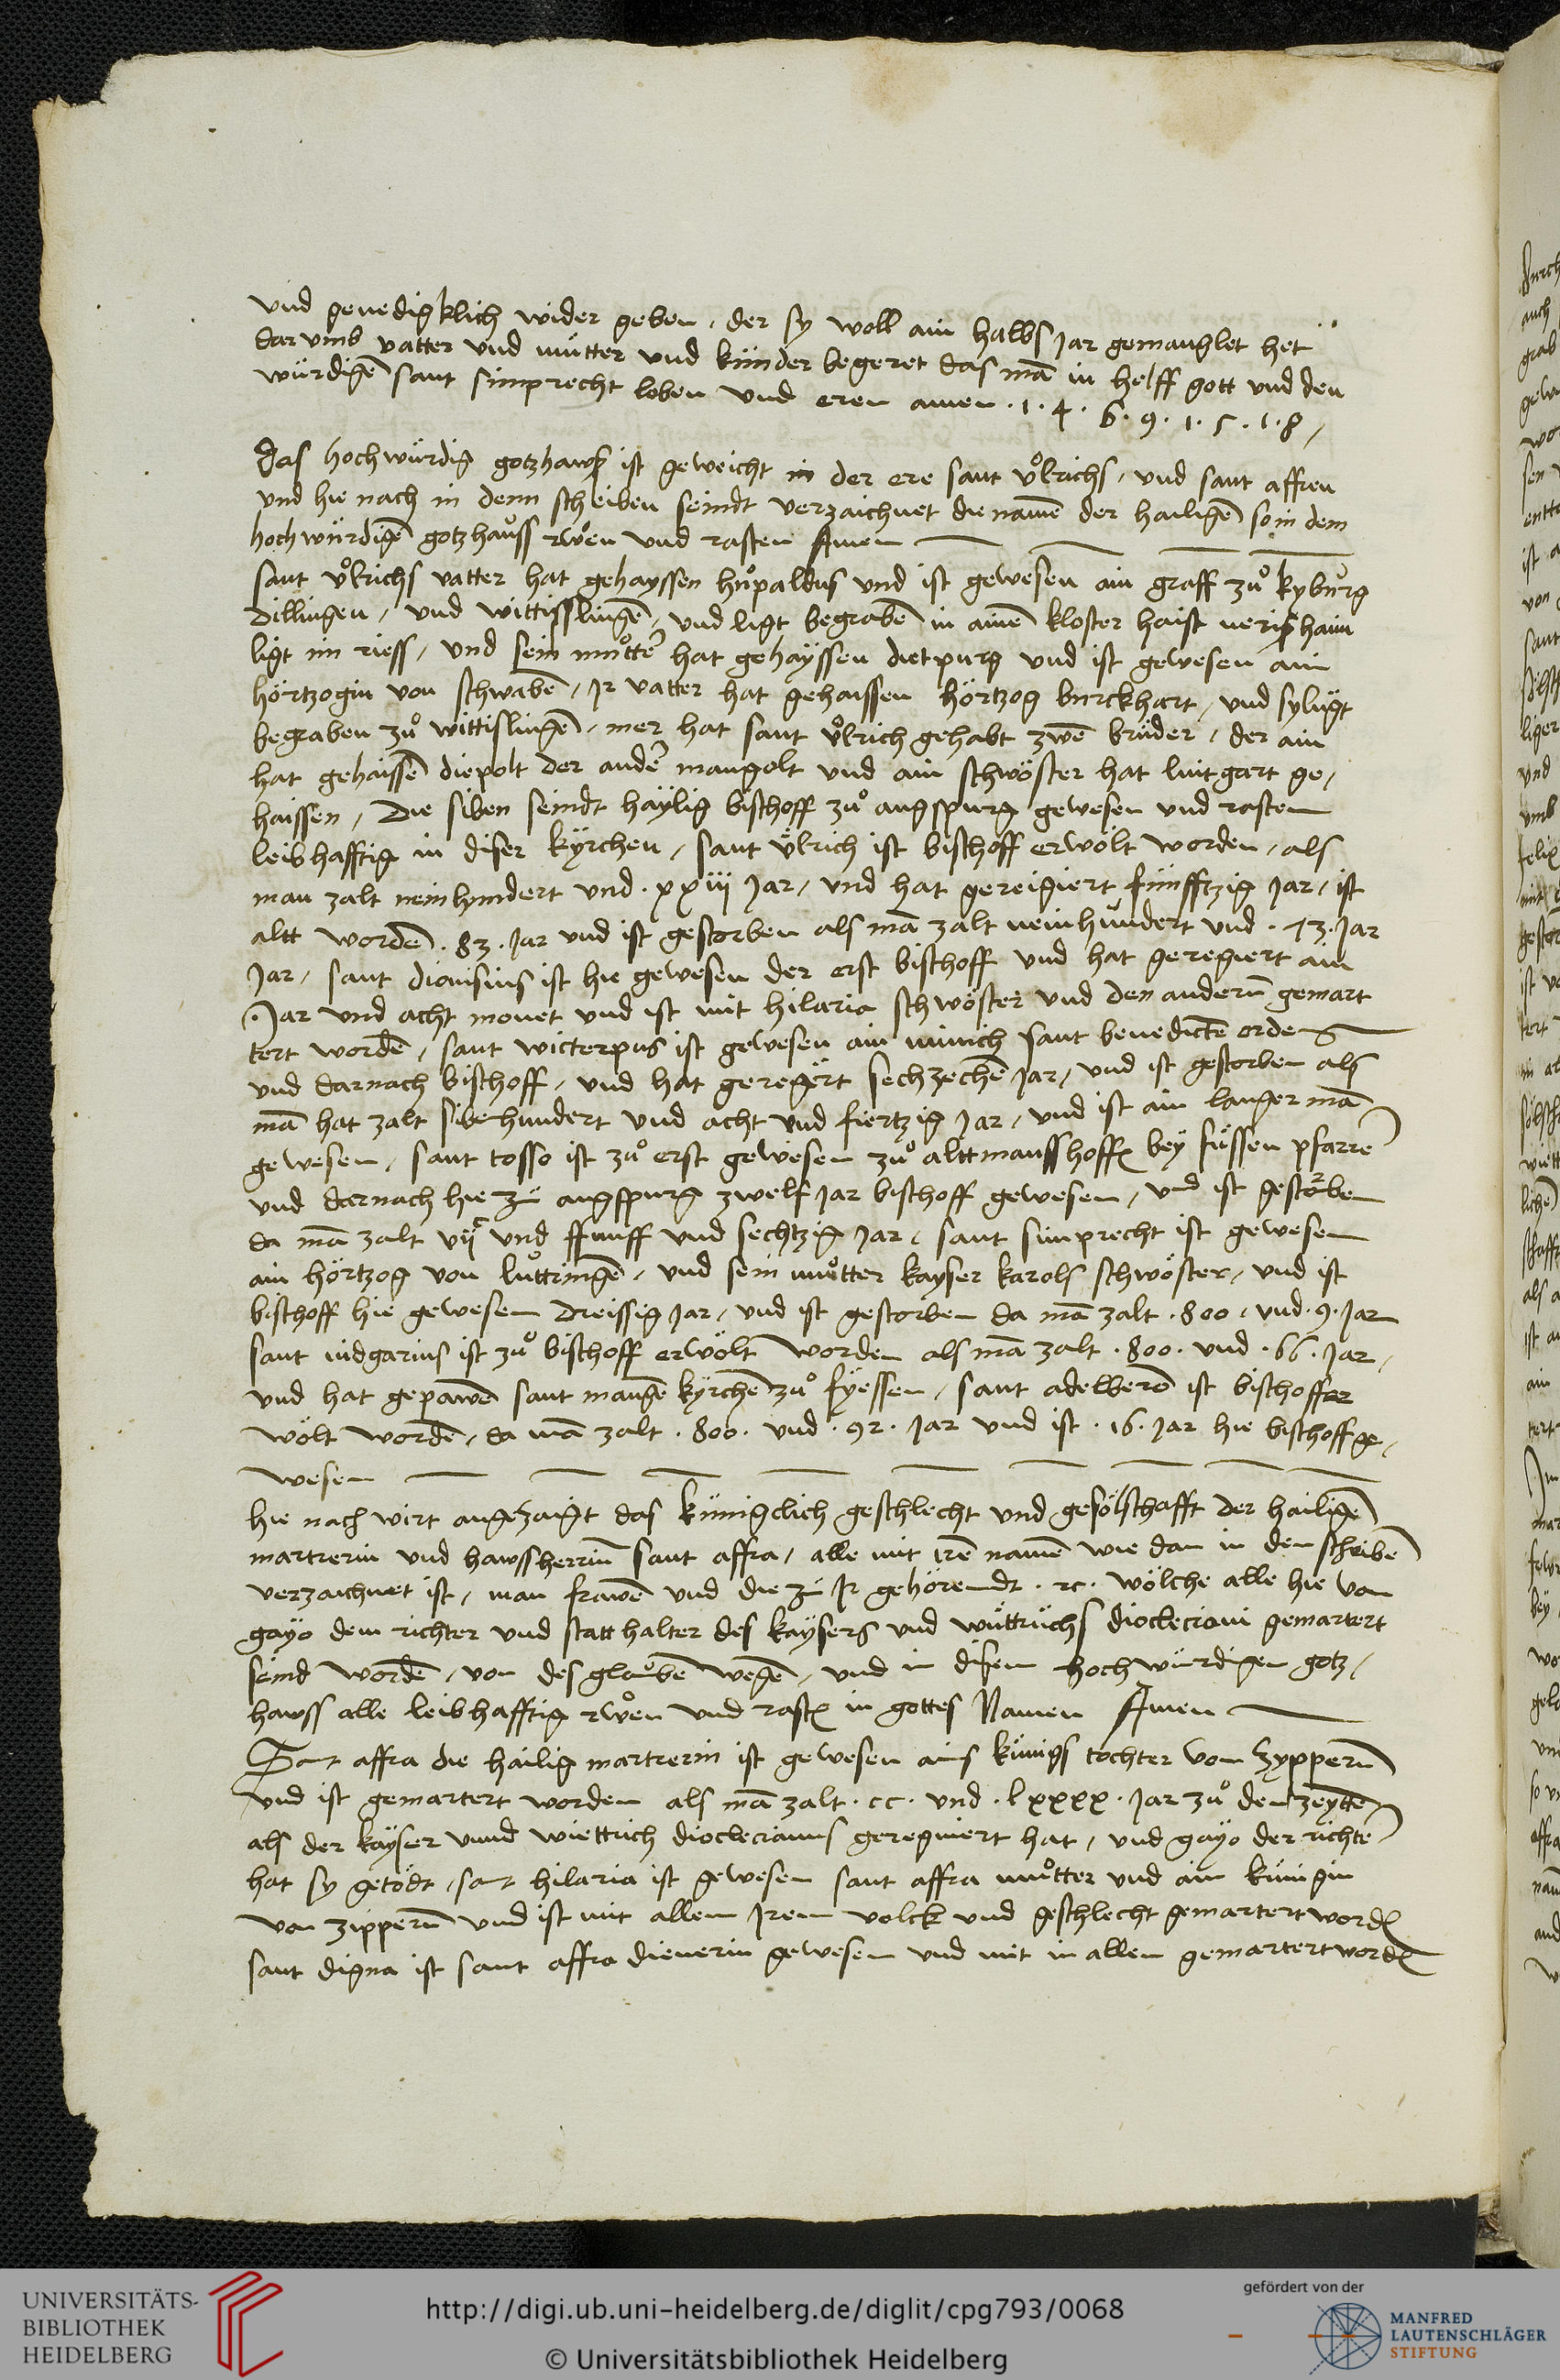 vnd genedigklich wider geben / der sy woll ain halbs Jar gemanglet het
dar vmb vatter vnd mütter vnd künder begeret das mā in helff gott vnd den
würdigē sant simprecht loben vnd eren amen · 1 · 4 · 6 · 9 · 1 · 5 · 1 · 8 /
das hochwürdig gotzhawß ist geweicht in der ere sant vͦlrichs / vnd sant affren
vnd hie nach in denn scheiben seindt verzaichnet die namē der hailigē so in dem
hochwürdigē gotzhauss rwͦen vnd rasten Amen
sant vͦlrichs vatter hat gehayssen huͦpaldus vnd ist gewesen ain graff zuͦ kyburg
dillingen / vnd wittisslingē / vnd ligt begrabē in ainē kloster haist nerißhaim
ligt im riess / vnd sein muͦtter hat gehayssen dietpurg vnd ist gewesen ain
hörtzogin von schwabē / Jr vatter hat gehaissen hörtzog burckhart / vnd sy lügt
begraben zuͦ wittislingē / mer hat sant vͦlrich gehabt zwē brüder / der ain
hat gehaissē diepolt der ander mangolt vnd ain schwöster hat luitgart ge /
haissen / die siben seindt häylig bischoff zuͦ augspurg gewesen vnd rasten
leibhafftig in diser kyrchen / sant vͦlrich ist bischoff erwölt worden / als
man zalt neinhundert vnd · xxiij Jar / vnd hat gereigiert fünfftzig Jar / ist
altt wordē · 83 · Jar vnd ist gestorben als mā zalt neinhundert vnd · 73 · Jar
Jar / sant dionisius ist hie gewesen der erst bischoff vnd hat geregiert ain
Jar vnd acht monet vnd ist mit hilaria schwöster vnd den anderū gemart
tert wordē / sant wicterpus ist gewesen ain münich sant benedictē ordens
vnd darnach bischoff / vnd hat geregērt sechzechē Jar / vnd ist gestorben als
mā hat zalt sibehundert vnd acht vnd fiertzig Jar / vnd ist ain langer mā
gewesen / sant tosso ist zuͦ erst gewesen zuͦ alttmansshoffē bey füssen pfarrer
vnd darnach hie zü augspurg zwelf Jar bischoff gewesen / vnd ist gestorben
da mā zalt vijᶜ vnd ffunff vnd sechtzig Jar / sant simprecht ist gewesen
ain hörtzog von luttringē / vnd sein muͦtter kayser karols schwöster / vnd ist
bischoff hie gewesen dreissig Jar / vnd ist gestorben da mā zalt · 800 · vnd · 9 · Jar
sant nidgarius ist zuͦ bischoff erwölt worden als mā zalt · 800 · vnd · 66 · Jar /
vnd hat gepawē sant mangē kyrchē zuͦ fyessen / sant adelberō ist bischoff er
wölt wordē / da mā zalt · 800 · vnd · 92 · Jar vnd ist · 16 · Jar hie bischoff ge /
wesen
hie nach wirt angezaigt das künigclich geschlecht vnd gesölschafft der hailigē
martrerin vnd hawssherrin sant affra / alle mit irē namē wie dan in den scheibē
verzaichnet ist / man frawē vnd die zü Jr gehörendt · ꝛc · wölche alle hie von
gayo dem richter vnd statthalter des kaysers vnd wüttrichs dioclecioni gemartert
seind wordē / von des glaubē wegē / vnd in disem hochwürdigen gotz /
hawss alle leibhafftig rwͦen vnd rastē in gottes Namen Amen
Sant affra die hailig martrerin ist gewesen ains künigs tochter von zypperū
vnd ist gemartert worden als mā zalt · cc · vnd · lxxxx · Jar zuͦ den zeyttē
als der kayser vnnd wiettrich dioclecianus geregniert hat / vnd gayo der richter
hat sy getödt / sant hilaria ist gewesen sant affra muͦtter vnd ain künigin
von zipperū vnd ist mit allem Jrem volck vnd geschlecht gemartert wordē
sant digna ist sant affra dienerin gewesen vnd mit in allen gemartert wordē
UNIVERSITÄTS-
BIBLIOTHEK
HEIDELBERG
http://digi.ub.uni-heidelberg.de/diglit/cpg793/0068
© Universitätsbibliothek Heidelberg
gefördert von der
MANFRED
LAUTENSCHLÄGER
STIFTUNG